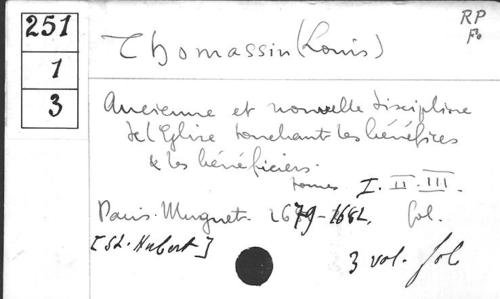 251
1
3
RP
Fo
Thomassin (Louis)
Ancienne et nouvelle discipline
de l'Eglise touchant les bénéfices
& les bénéficiers.
tomes I. II. III.
Paris. Muguet. 1679-1682. fol.
[St. Hubert]
3 vol. fol